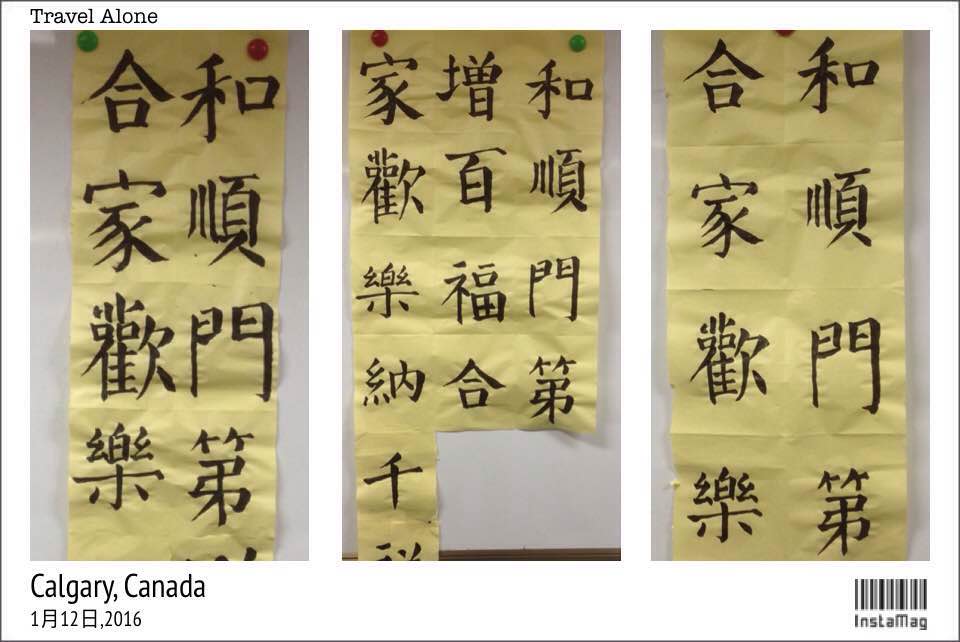 Travel Alone
和順門第
合家歡樂
和順門第
增百福合
家歡樂納千
和順門第
合家歡樂
Calgary, Canada
1月12日,2016
InstaMag